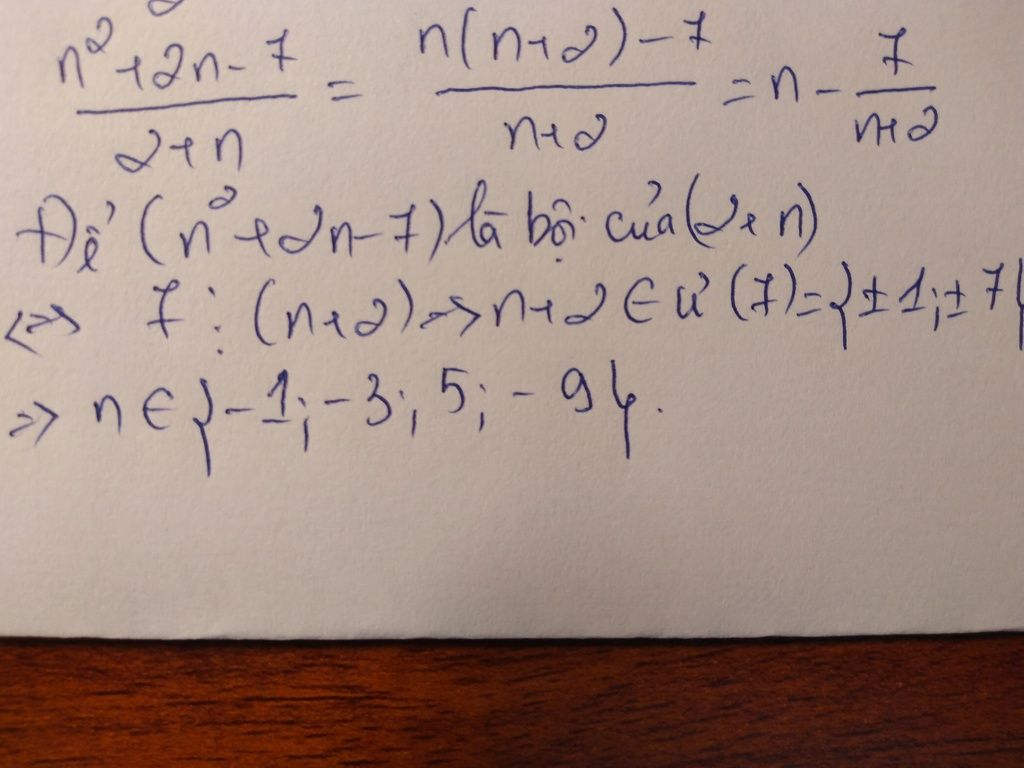 n²+2n-7 / 2+n = n(n+2)-7 / n+2 = n - 7 / n+2
Để (n²+2n-7) là bội của (2+n)
<=> 7 ⋮ (n+2) => n+2 ∈ Ư(7)={±1;±7}
=> n ∈ {-1;-3; 5; -9}.